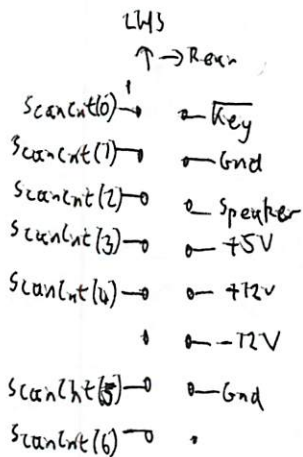 LHS
↑ → Rear
1
ScanCnt(0) Key
ScanCnt(1) Gnd
ScanCnt(2) Speaker
ScanCnt(3) +5V
ScanCnt(4) +12V
-12V
ScanCnt(5) Gnd
ScanCnt(6)